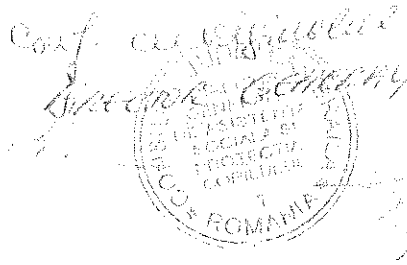 Conf. cu originalul
Director General
DIRECȚIA
GENERALĂ
DE ASISTENȚĂ
SOCIALĂ ȘI
PROTECȚIA
COPILULUI
1
* ROMÂNIA *